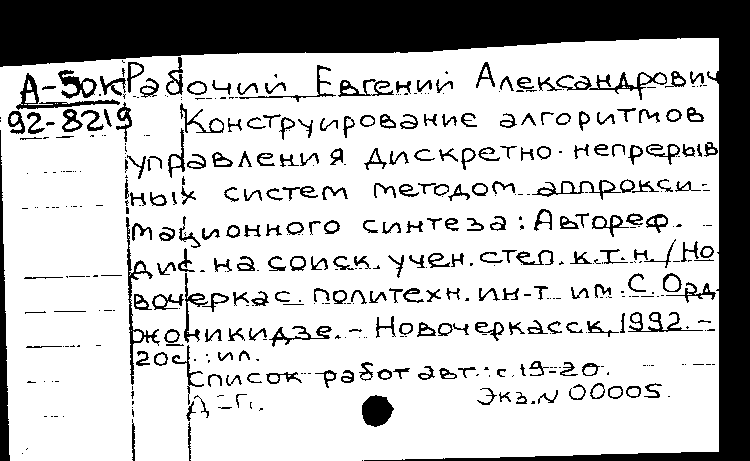 А-50к Рабочий, Евгений Александрович
92-8219 Конструирование алгоритмов
управления дискретно-непрерыв
ных систем методом аппрокси-
мационного синтеза: Автореф.
дис. на соиск. учен. степ. к.т.н. / Но-
вочеркас. политехн. ин-т им. С. Орд-
жоникидзе. - Новочеркасск, 1992. -
20с. : ил.
Список работ авт.: с. 19-20.
Экз. N 00005.